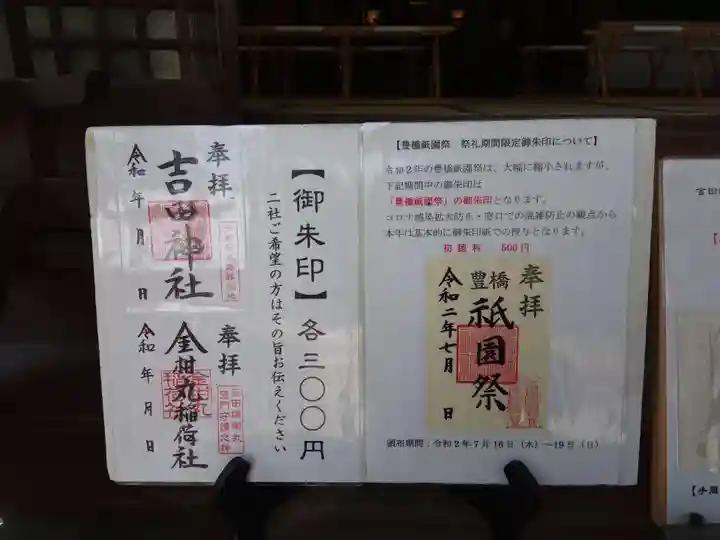 奉拝
吉田神社
令和　年　月　日
奉拝
金柑丸稲荷社
令和　年　月　日
【御朱印】各三〇〇円
二社ご希望の方はその旨お伝えください
【豊橋祇園祭　祭礼期間限定御朱印について】
令和２年の豊橋祇園祭は、大幅に縮小されますが、
下記期間中の御朱印は
「豊橋祇園祭」の御朱印となります。
コロナ感染拡大防止・窓口での混雑防止の観点から
本年は基本的に御朱印紙での授与となります。
初穂料　500円
奉拝
豊橋
祇園祭
令和二年七月　日
頒布期間：令和２年７月１６日（木）～１９日（日）